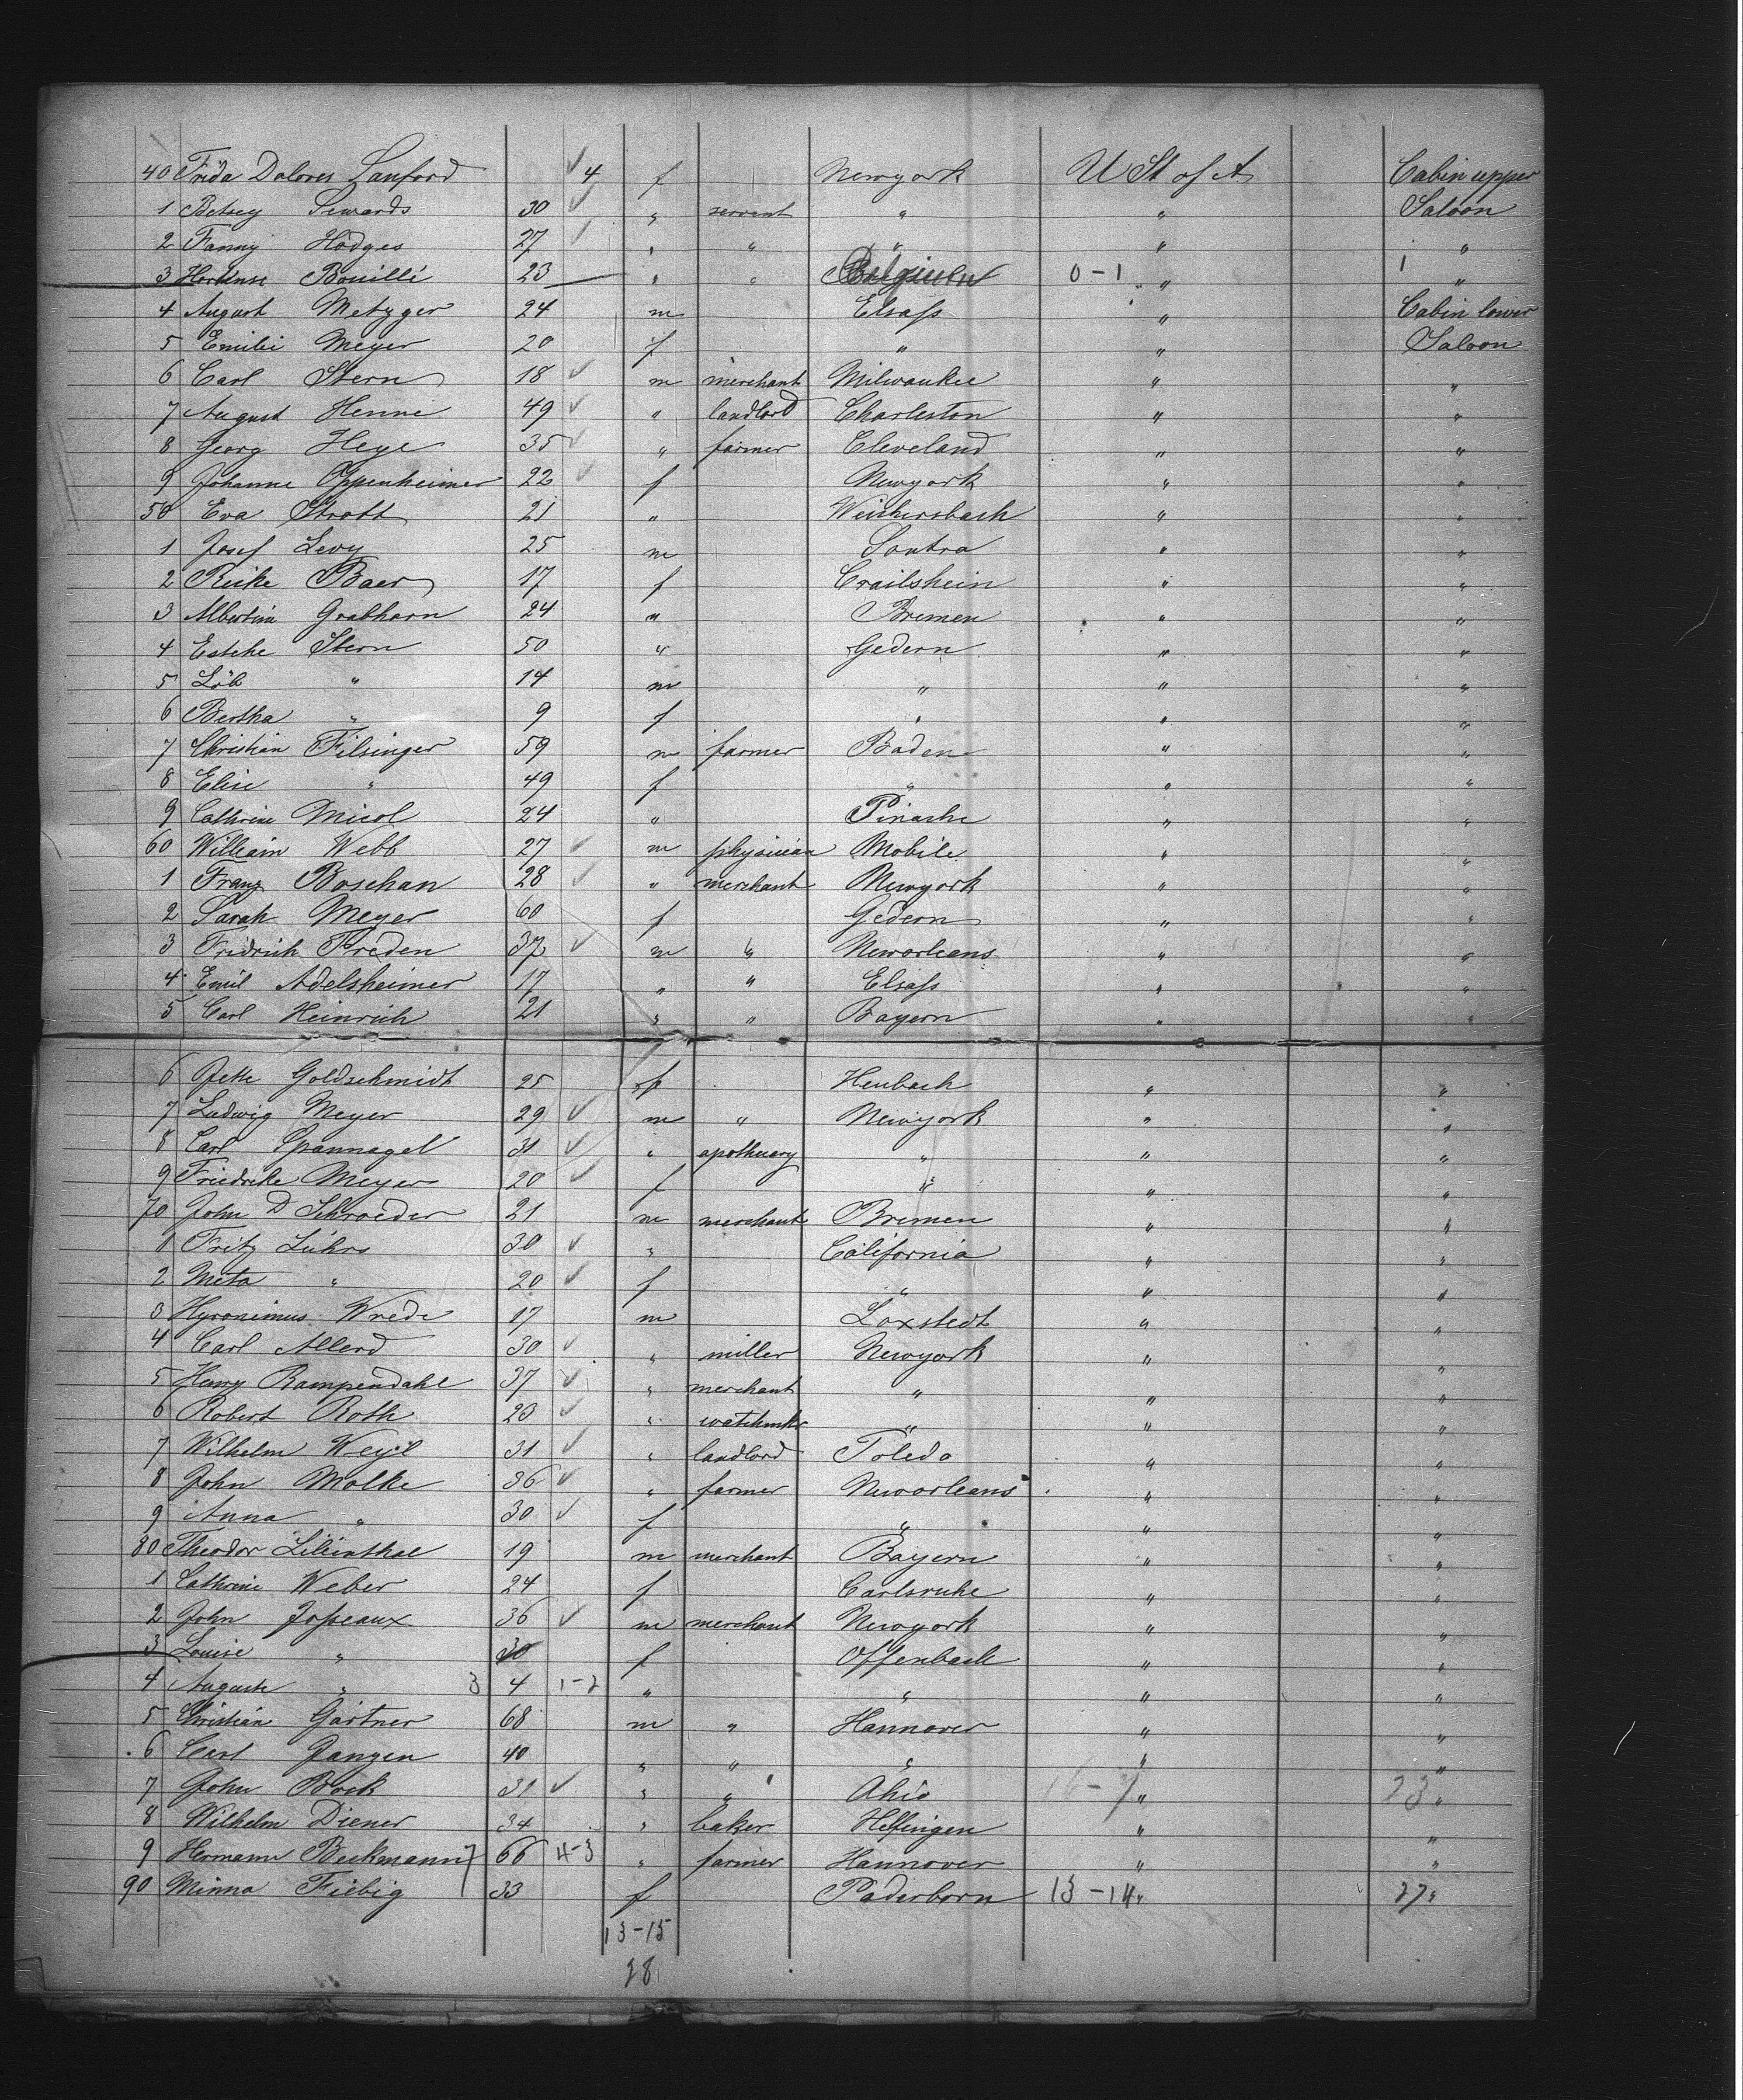 40 Frida Dolores Sanford 4 f Newyork U St of A Cabin upper
1 Betsey Sewards 30 " servant " " Saloon
2 Fanny Hodges 27 " " " " "
3 Hortense Bouillé 23 " " Belgium 0-1 " 1 "
4 August Metzger 24 m Elsaß " Cabin lower
5 Emilie Meyer 20 f " " Saloon
6 Carl Stern 18 m merchant Milwaukee " "
7 August Henne 49 " landlord Charleston " "
8 Georg Heye 35 " farmer Cleveland " "
9 Johanne Oppenheimer 22 f Newyork " "
50 Eva Strott 21 " Weichersbach " "
1 Josef Levy 25 m Sontra " "
2 Rieke Baer 17 f Crailshein " "
3 Albertine Grabhorn 24 " Bremen " "
4 Esteke Stern 50 " Gedern " "
5 Löb " 14 m " " "
6 Bertha " 9 f " " "
7 Christian Filsinger 59 m farmer Baden " "
8 Elise " 49 f " " "
9 Cathrine Micol 24 " Pinache " "
60 William Webb 27 m physician Mobile " "
1 Franz Boschan 28 " merchant Newyork " "
2 Sarah Meyer 60 f Gedern " "
3 Fridrich Freden 37 m " Neworleans " "
4 Emil Adelsheimer 17 " " Elsaß " "
5 Carl Heinrich 21 " " Bayern " "
6 Jette Goldschmidt 25 f Heubach " "
7 Ludwig Meyer 29 m " Newyork " "
8 Carl Spannagel 31 " apothecary " " "
9 Friedrike Meyer 20 f " " "
70 John D Schroeder 21 m merchant Bremen " "
1 Fritz Lührs 30 " California " "
2 Meta " 20 f " " "
3 Hyronimus Wrede 17 m Loxstedt " "
4 Carl Allerd 30 " miller Newyork " "
5 Henry Rampendahl 37 " merchant " " "
6 Robert Roth 23 " watchmkr " " "
7 Wilhelm Weyl 31 " landlord Toledo " "
8 John Molke 36 " farmer Neworleans " "
9 Anna " 30 f " " "
80 Theodor Lilienthal 19 m merchant Bayern " "
1 Cathrine Weber 24 f Carlsruhe " "
2 John Joßeaux 36 m merchant Newyork " "
3 Louise " 30 f Offenbach " "
4 Auguste " 3 4 1-2 " " " "
5 Christian Gärtner 68 m " Hannover " "
6 Carl Jangen 40 " " " " "
7 John Bock 31 " " Ohio 16-7 " 23 "
8 Wilhelm Diener 34 " baker Hefingen " "
9 Hermann Beckmann 7 66 4-3 " farmer Hannover " "
90 Minna Fiebig 33 f Paderborn 13-14 " 27 "
13-15
28